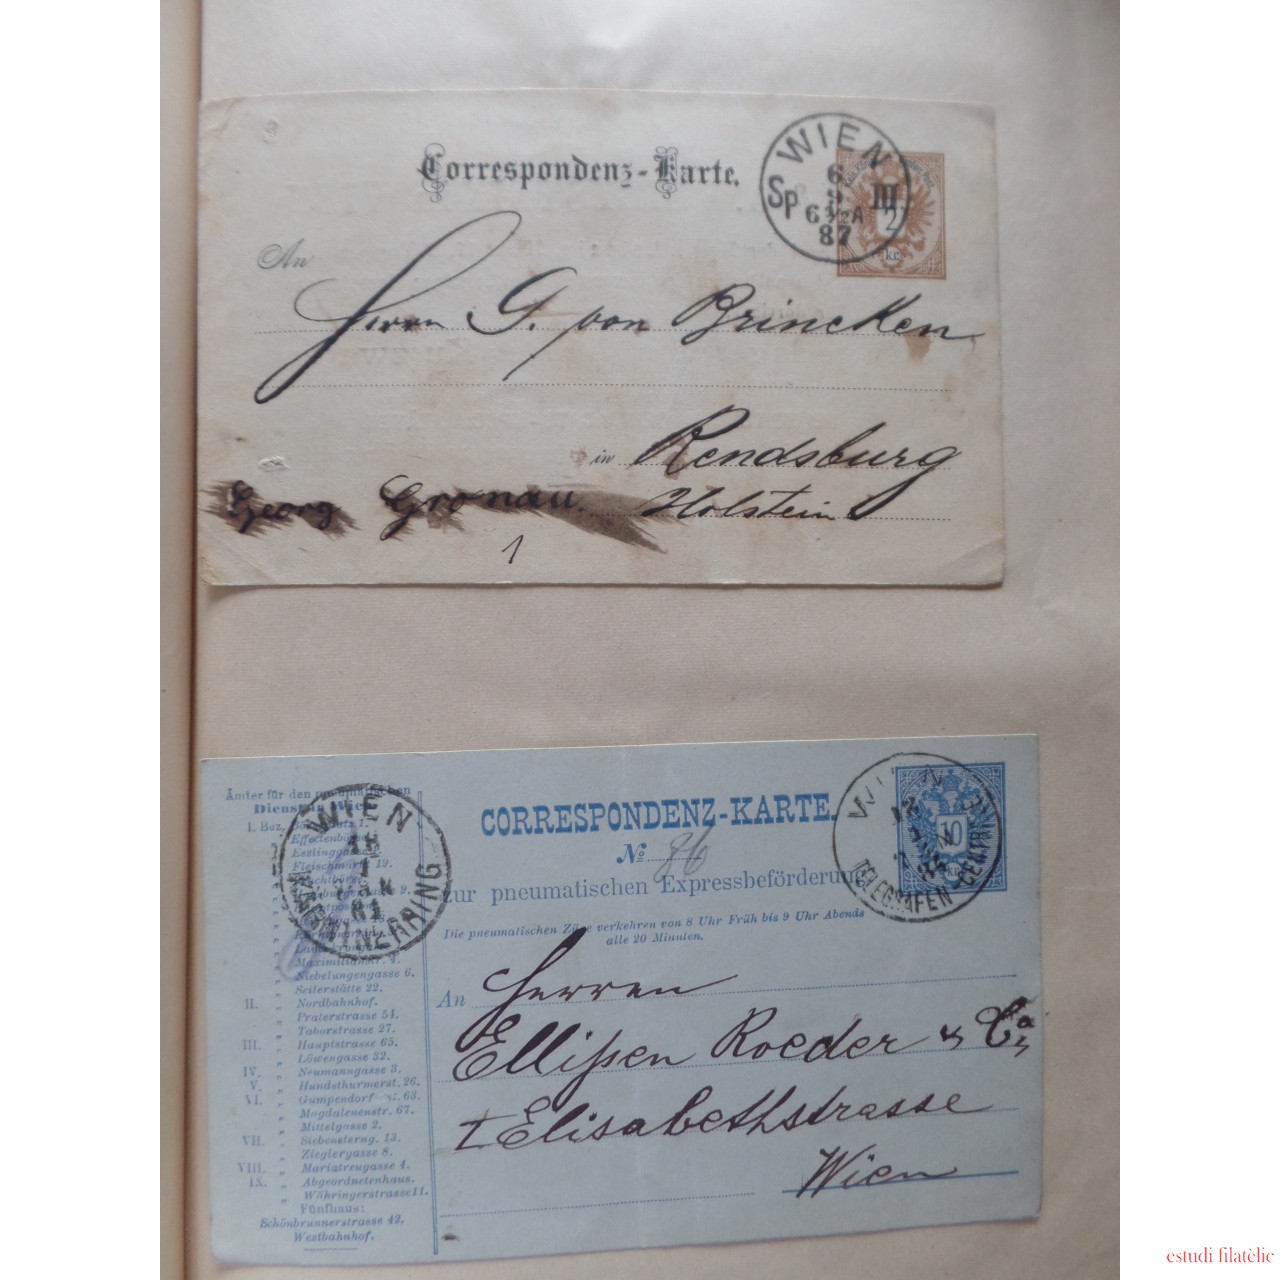 Correspondenz-Karte.
WIEN
6
9
6½A
87
Sp
III
2
kr.
An
Herrn G. von Brincken
in Rendsburg
Holstein
Georg Gronau.
1
Ämter für den pneumatischen
Dienst in Wien
I. Bez.
Effectenbörse
Esslinggasse
Fleischmarkt 19.
Maximilianstr. 4.
Niebelungengasse 6.
Seilerstätte 22.
II. Nordbahnhof.
Praterstrasse 54.
Taborstrasse 27.
III. Hauptstrasse 65.
Löwengasse 32.
IV. Neumanngasse 3.
V. Hundsthurmerst. 26.
VI. Gumpendorf st. 63.
Magdalenenstr. 67.
Mittelgasse 2.
VII. Siebensterng. 13.
Zieglergasse 8.
VIII. Mariatreugasse 4.
IX. Abgeordnetenhaus.
Währingerstrasse 11.
Fünfhaus:
Schönbrunnerstrasse 42.
Westbahnhof.
WIEN
KÄRNTNERRING
CORRESPONDENZ-KARTE.
No 26
zur pneumatischen Expressbeförderung
Die pneumatischen Züge verkehren von 8 Uhr Früh bis 9 Uhr Abends
alle 20 Minuten.
WIEN
TELEGRAFEN-CENTRALE
10
kr.
An Herren
Ellißen Roeder & Co,
I Elisabethstrasse
Wien
estudi filatèlic